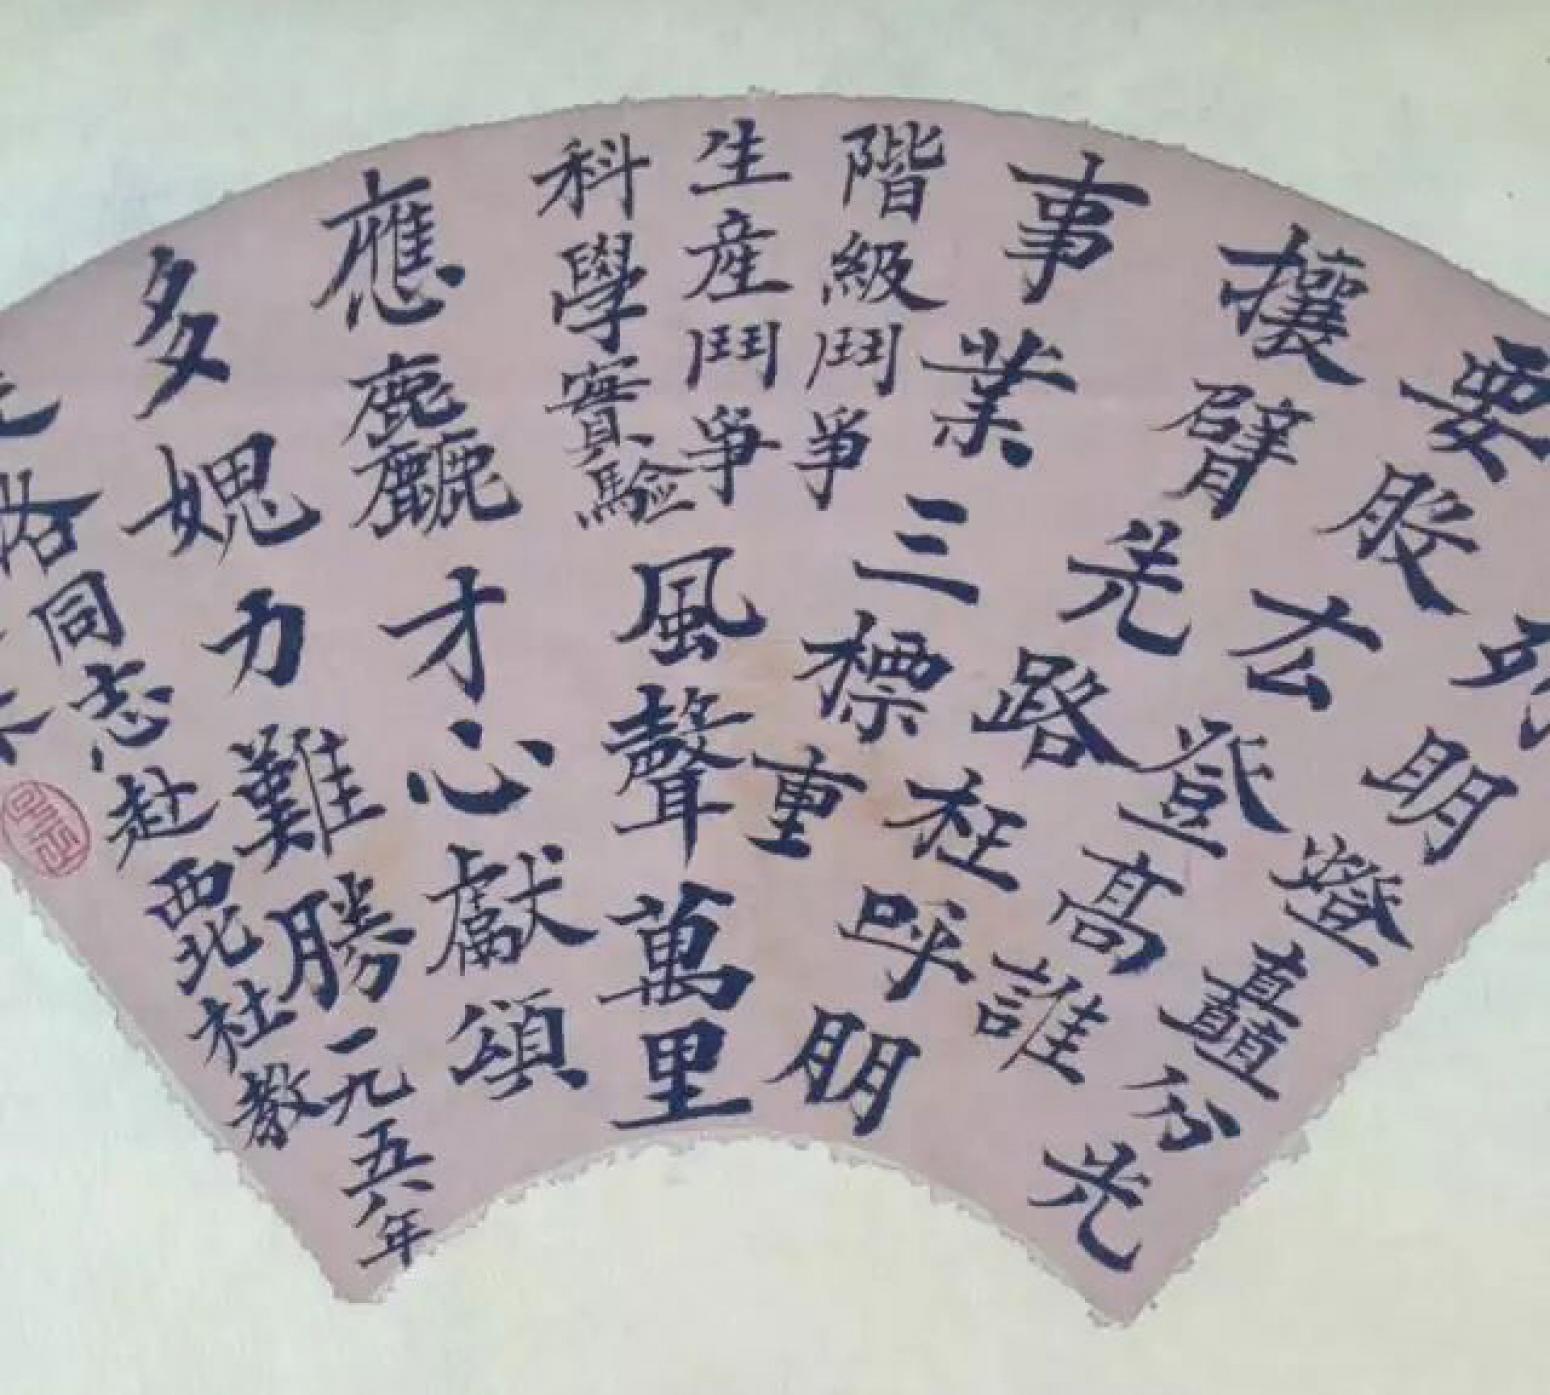 要股厷登高誰
明燈矗分光
攘臂羌路枉呼朋
事業三標重
階級鬥爭
生產鬥爭
科學實驗
風聲萬里
應麤才心獻頌
多媿力難勝一九五八年
同志赴西北社教